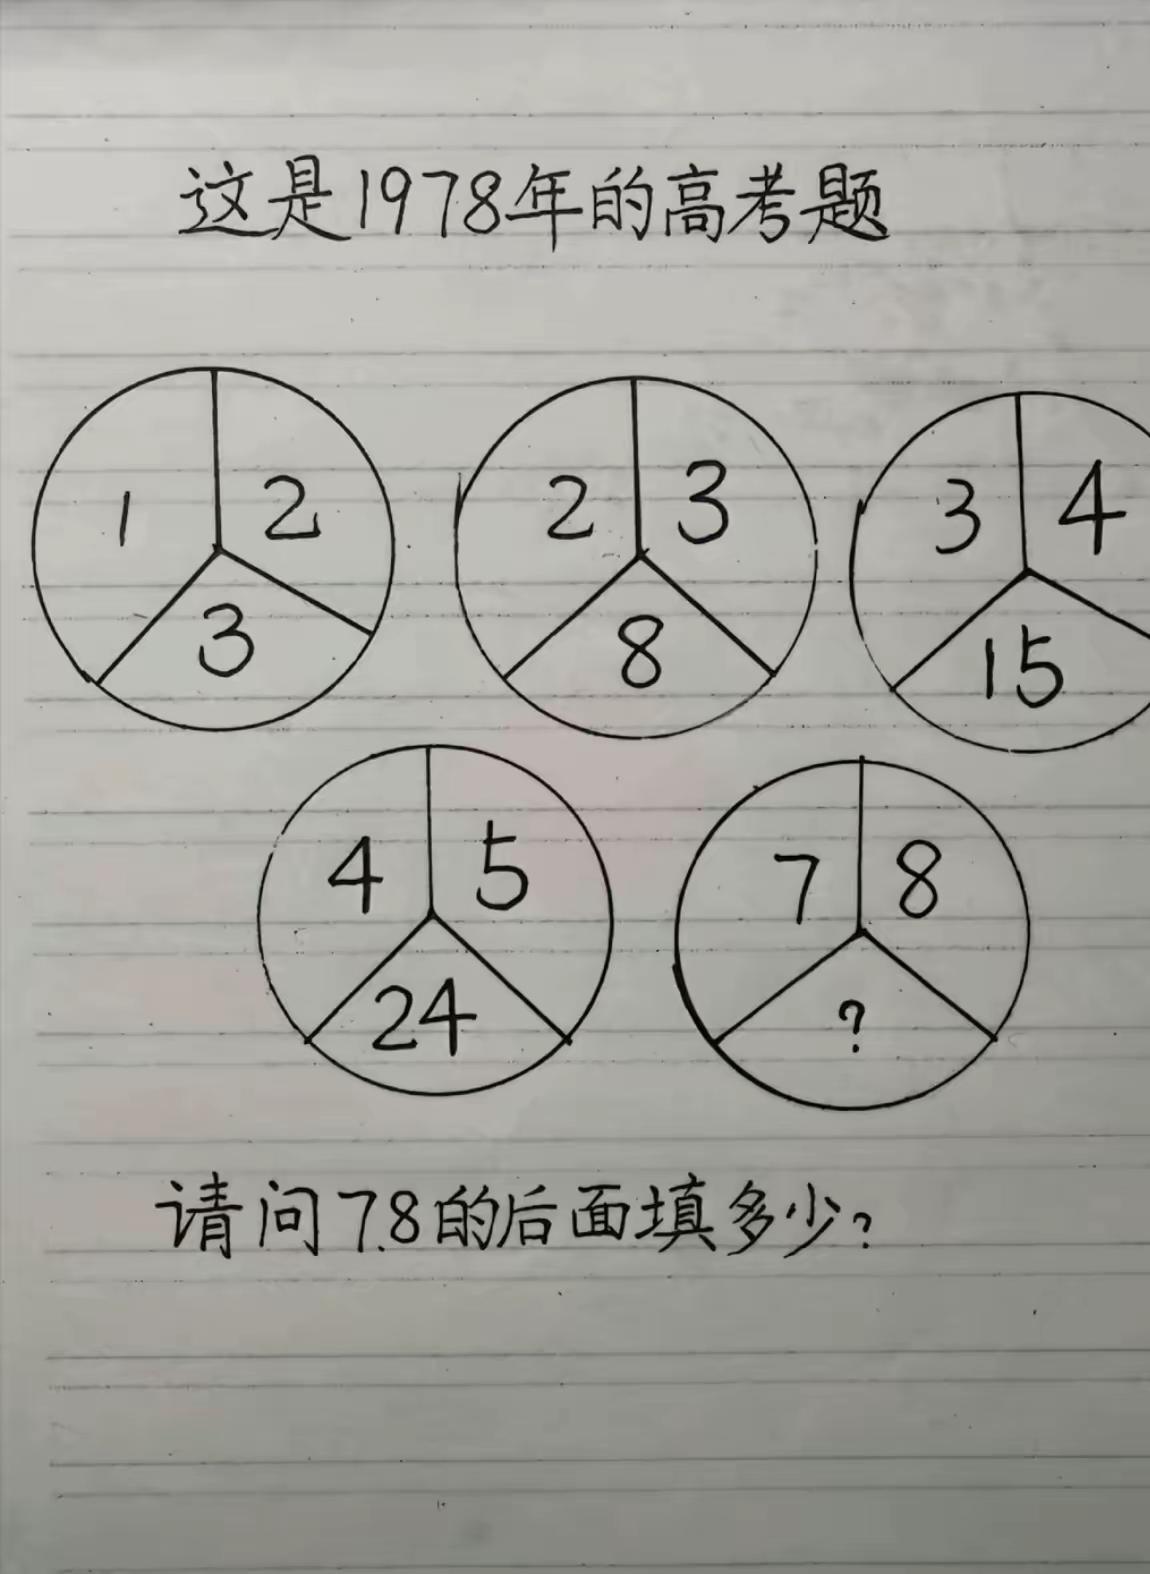 这是1978年的高考题
1 2 2 3 3 4
3 8 15
4 5 7 8
24 ?
请问7.8的后面填多少?